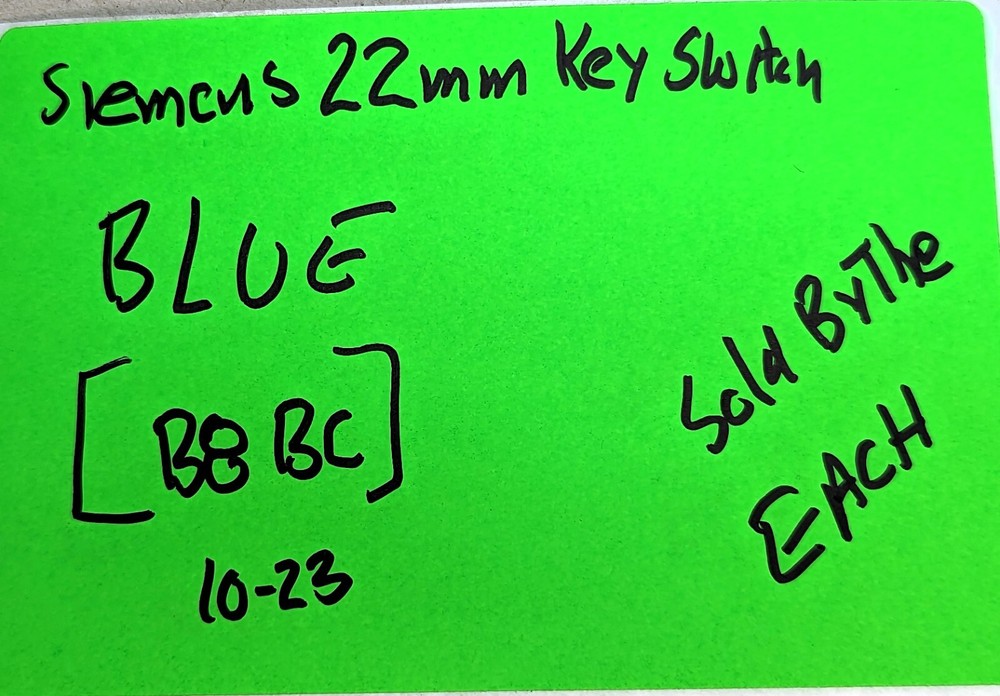 Siemens 22mm Key Switch
BLUE
[B8BC]
10-23
Sold By The
EACH